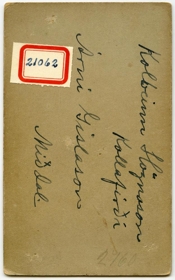 21062
Kolbeinn Högnason
Kollafirði
Árni Gíslason
Miðdal